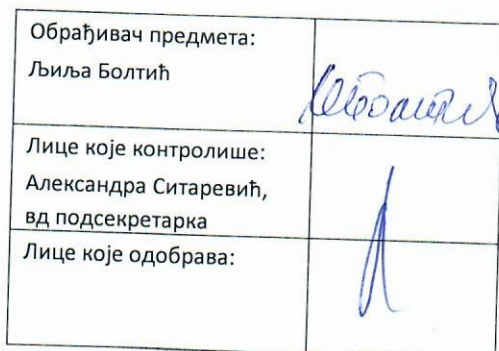 Обрађивач предмета:
Љиља Болтић
Лице које контролише:
Александра Ситаревић,
вд подсекретарка
Лице које одобрава: